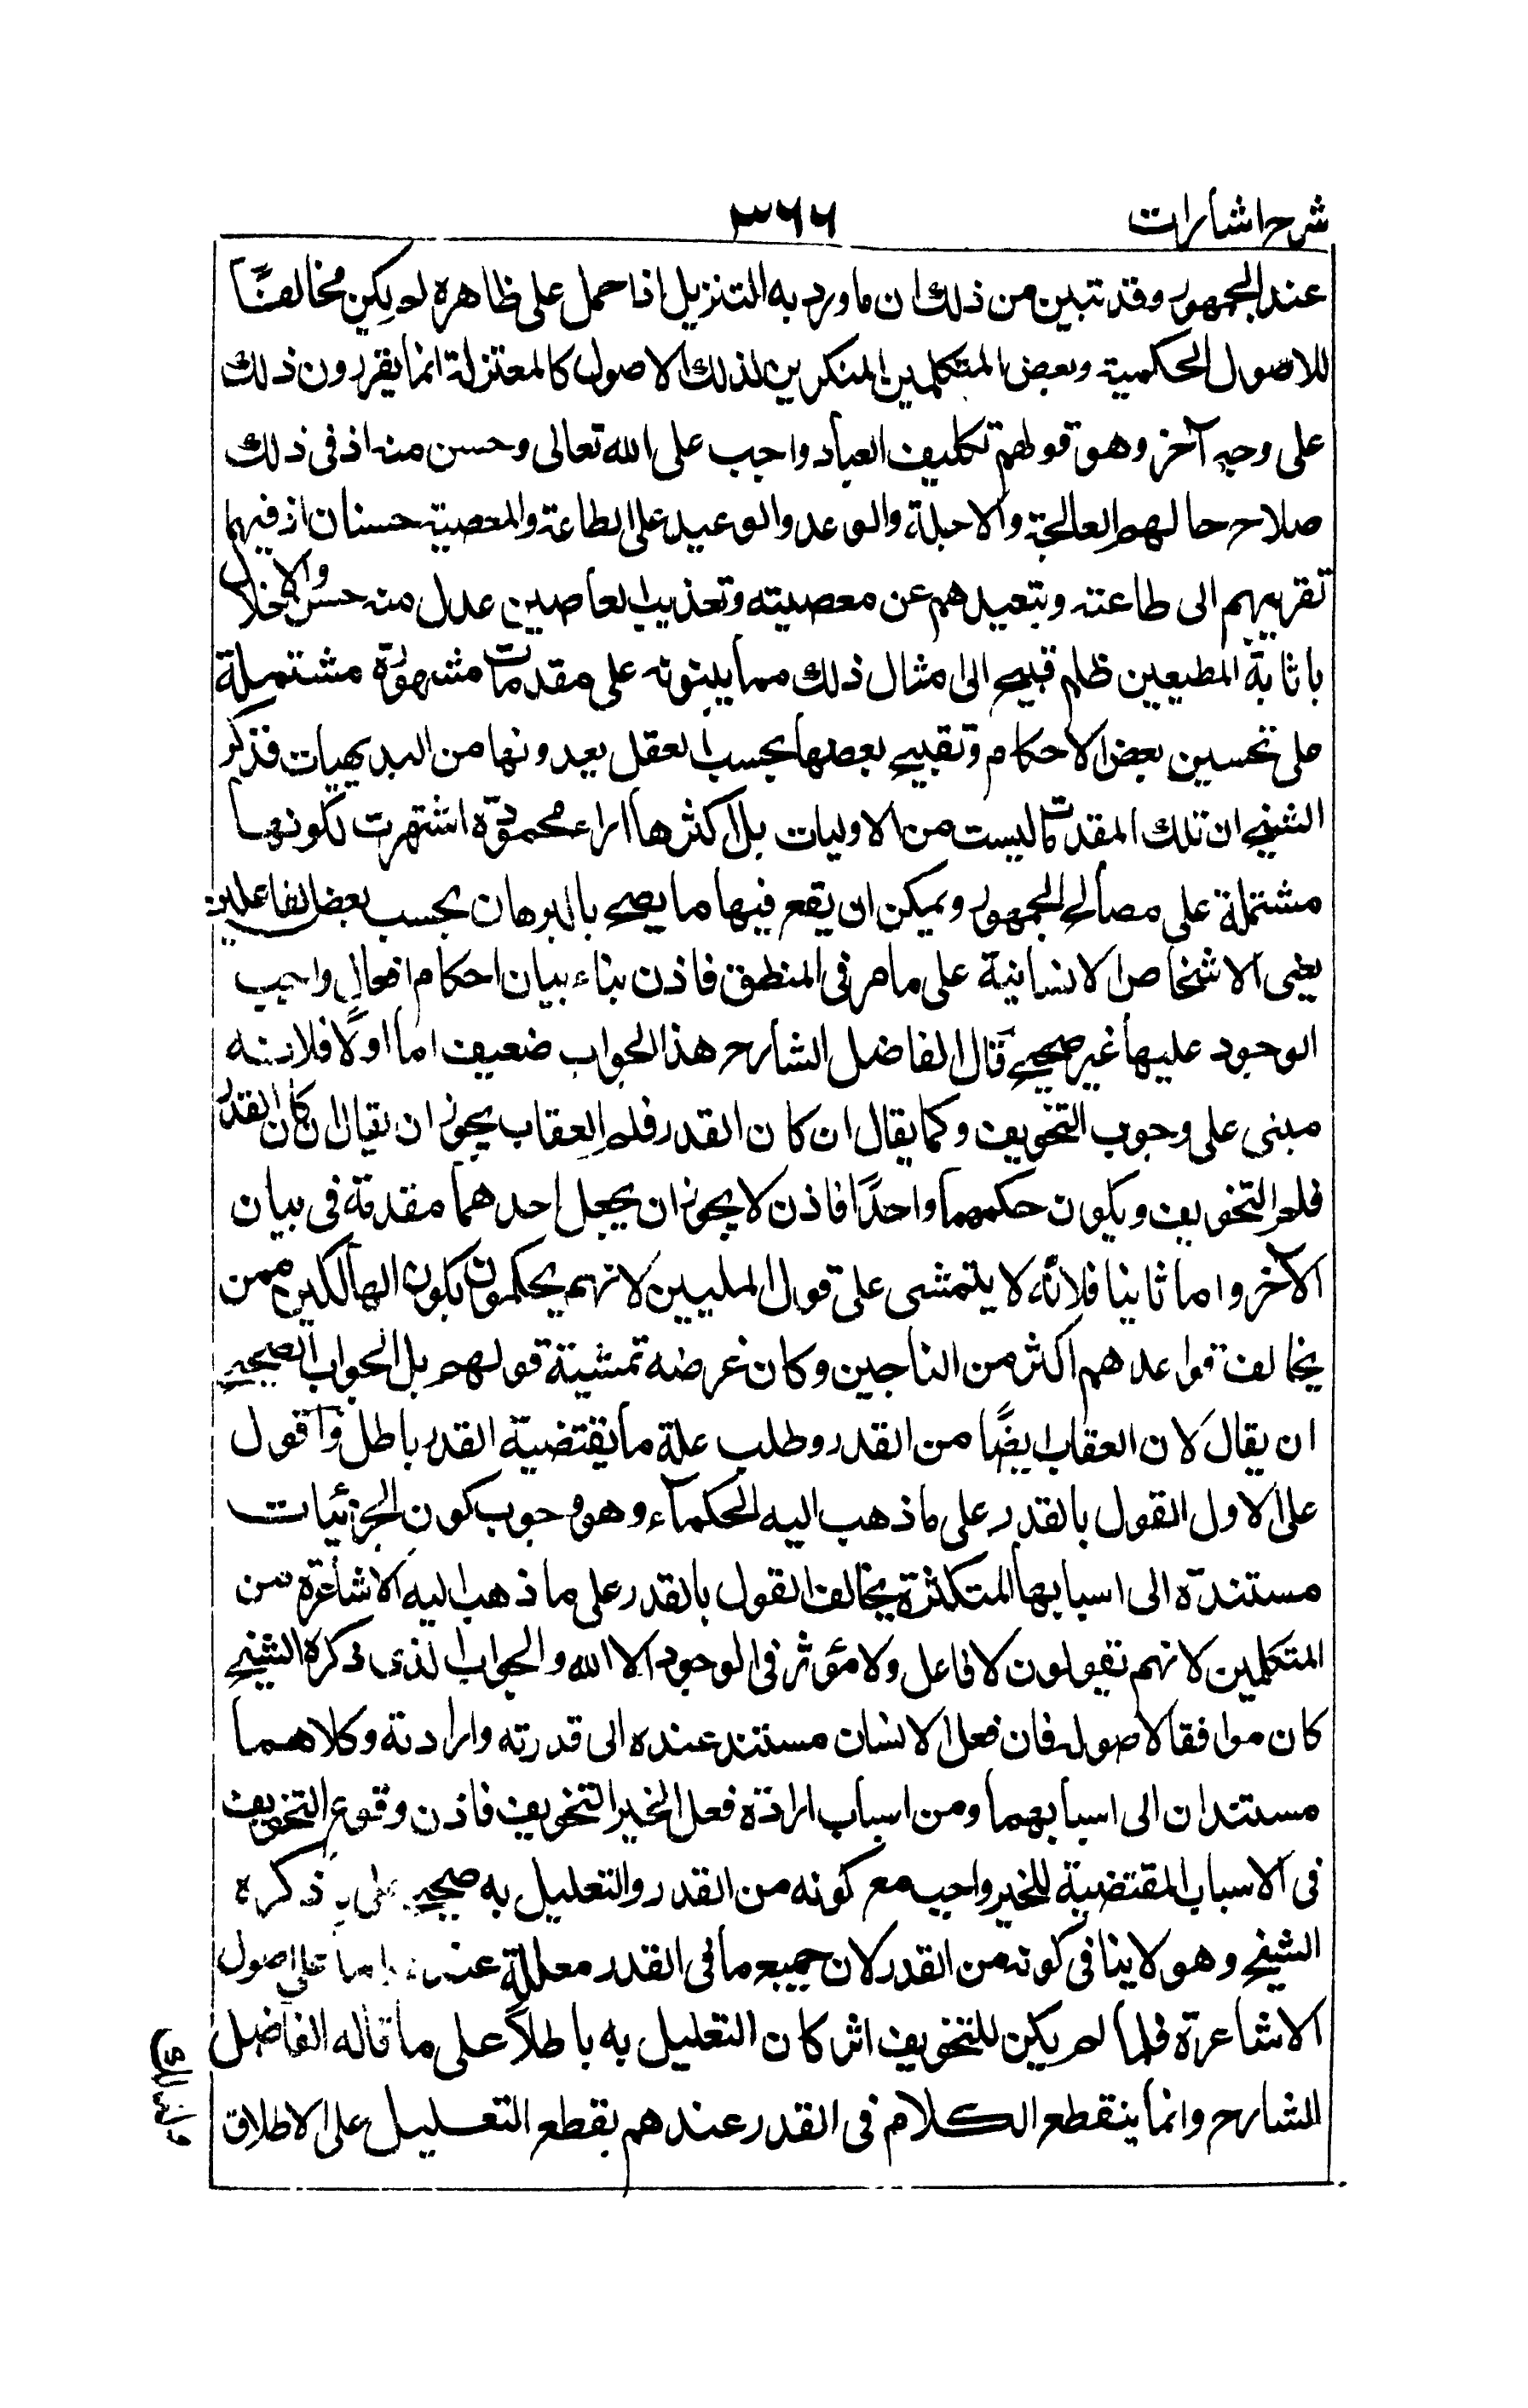 شرح اشارات ٣٦٦
عند الجمهور وقد تبين من ذلك ان ما ورد به التنزيل اذا حمل على ظاهره لم يكن مخالفًا
للاصول الحكمية وبعض المتكلمين المنكرين لذلك الاصول كالمعتزلة انما يقررون ذلك
على وجه آخر وهو قولهم تكليف العباد واجب على الله تعالى وحسن منه اذ فى ذلك
صلاح حالهم العاجلة والاجلة والوعد والوعيد على الطاعة والمعصية حسنان اذ فيهما
تقريبهم الى طاعته وتبعيدهم عن معصيته وتعذيب العاصين عدل منه حسن والاخلال
باثابة المطيعين ظلم قبيح الى امثال ذلك مما يبنونه على مقدمات مشهورة مشتملة
على تحسين بعض الاحكام وتقبيح بعضها بحسب العقل يعدونها من البديهيات فذكر
الشيخ ان تلك المقدمات ليست من الاوليات بل اكثرها اراء محمودة اشتهرت لكونها
مشتملة على مصالح الجمهور ويمكن ان يقع فيها ما يصح بالبرهان بحسب بعض الفاعلين
يعنى الاشخاص الانسانية على ما مر فى المنطق فاذن بناء بيان احكام افعال واجب
الوجود عليها غير صحيح قال الفاضل الشارح هذا الجواب ضعيف اما اولًا فلانه
مبنى على وجوب التخويف وكما يقال ان كان القدر فلم العقاب يجوز ان يقال ان كان القدر
فلم التخويف ويكون حكمهما واحدًا فاذن لا يجوز ان يجعل احدهما مقدمة فى بيان
الآخر واما ثانيا فلانه لا يتمشى على قول المليين لانهم يحكمون بكون الهالكين ممن
يخالف قواعدهم اكثر من الناجين وكان غرضه تمشية قولهم بل الجواب الصحيح
ان يقال لان العقاب ايضًا من القدر وطلب علة ما يقتضية القدر باطل واقول
على الاول القول بالقدر على ما ذهب اليه الحكمآء وهو وجوب كون الجزئيات
مستندة الى اسبابها المتكثرة يخالف القول بالقدر على ما ذهب اليه الاشاعرة من
المتكلمين لانهم يقولون لا فاعل ولا مؤثر فى الوجود الا الله والجواب الذى ذكره الشيخ
كان موافقا لاصوله فان فعل الانسان مستند عنده الى قدرته وارادته وكلاهما
مستندان الى اسبابهما ومن اسباب ارادة فعل الخير التخويف فاذن وقوع التخويف
فى الاسباب المقتضية للخير واجب مع كونه من القدر والتعليل به صحيح على ذكره
الشيخ وهو لا ينافى كونه من القدر لان جميع ما فى القدر معللة عنده اما على اصول
الاشاعرة فلما لم يكن للتخويف اثر كان التعليل به باطلًا على ما قاله الفاضل
الشارح وانما ينقطع الكلام فى القدر عندهم بقطع التعليل على الاطلاق